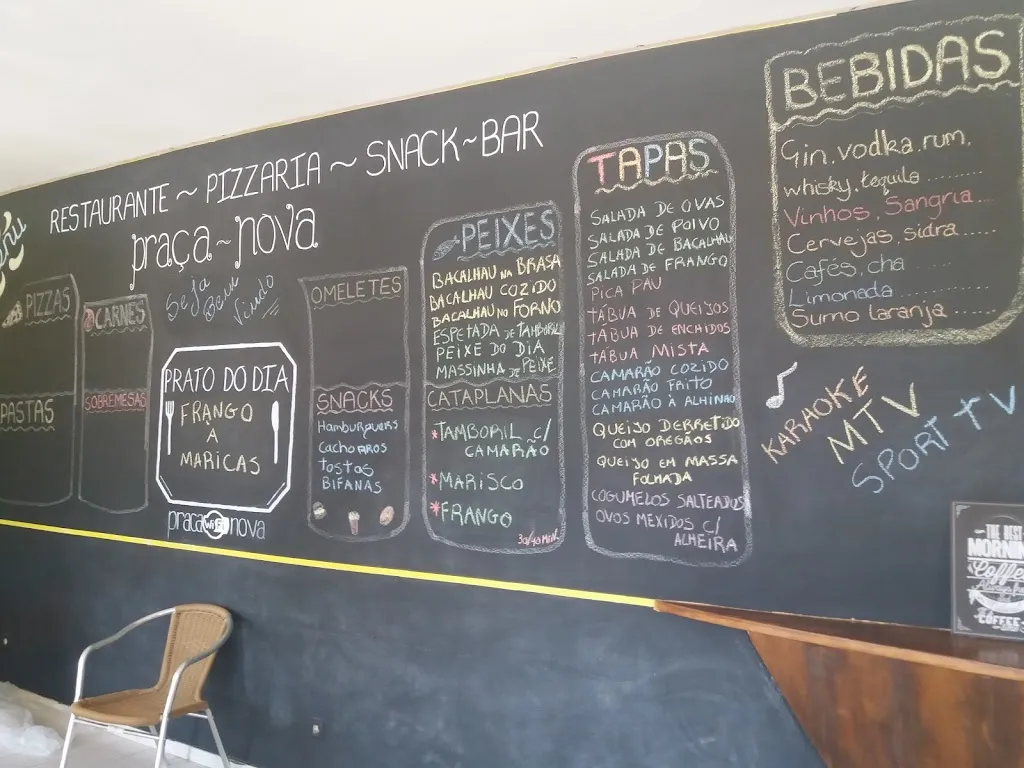 RESTAURANTE ~ PIZZARIA ~ SNACK~BAR
praça~nova
Seja
Bem
Vindo
PIZZAS
PASTAS
CARNES
SOBREMESAS
PRATO DO DIA
FRANGO
À
MARICAS
praça WiFi nova
OMELETES
SNACKS
Hamburguers
Cachorros
Tostas
BIFANAS
PEIXES
BACALHAU NA BRASA
BACALHAU COZIDO
BACALHAU NO FORNO
ESPETADA DE TAMBORIL
PEIXE DO DIA
MASSINHA DE PEIXE
CATAPLANAS
*TAMBORIL c/
CAMARÃO
*MARISCO
*FRANGO
30/40 MIN.
TAPAS
SALADA DE OVAS
SALADA DE POLVO
SALADA DE BACALHAU
SALADA DE FRANGO
PICA PAU
TÁBUA DE QUEIJOS
TÁBUA DE ENCHIDOS
TÁBUA MISTA
CAMARÃO COZIDO
CAMARÃO FRITO
CAMARÃO À ALHINHO
QUEIJO DERRETIDO
COM OREGÃOS
QUEIJO EM MASSA
FOLHADA
COGUMELOS SALTEADOS
OVOS MEXIDOS C/
ALHEIRA
BEBIDAS
Gin, vodka, rum,
whisky, tequila ......
Vinhos, Sangria...
Cervejas, sidra......
Cafés, cha ..........
Limonada ..........
Sumo laranja .......
KARAOKE
MTV
SPORT TV
THE BEST
MORNING
Coffee
COFFEE